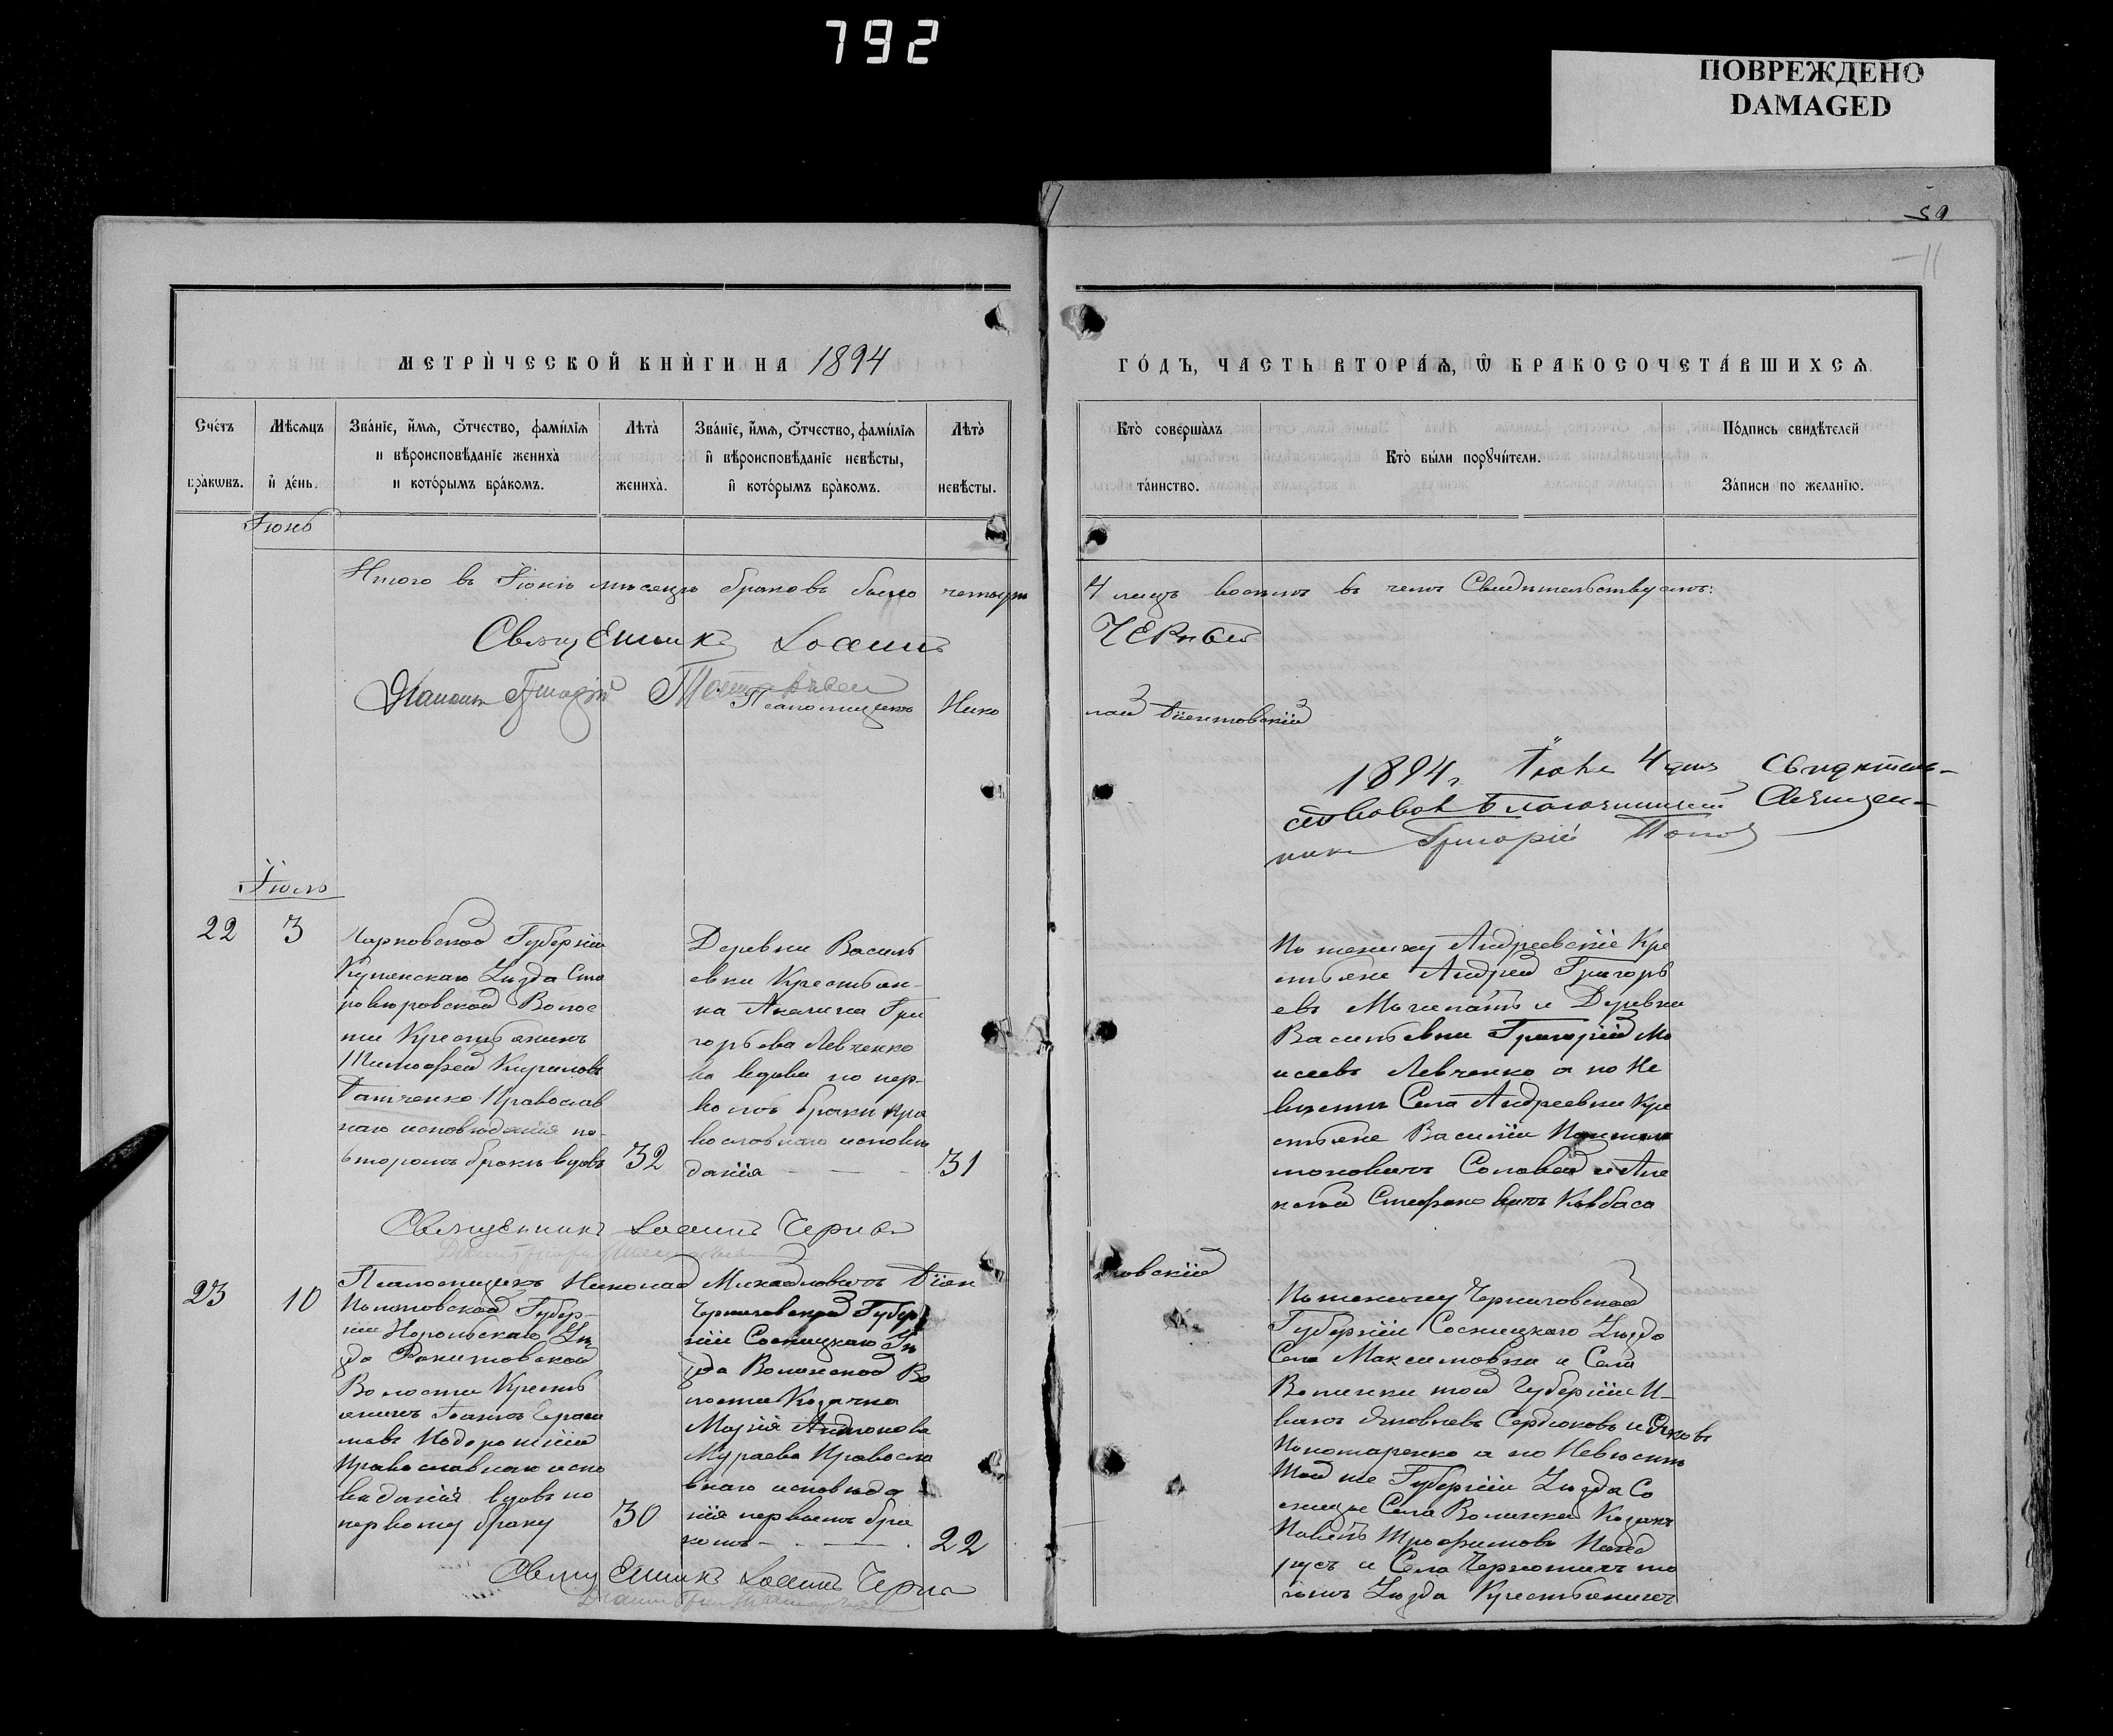 792
ПОВРЕЖДЕНО
DAMAGED
59
11
МЕТРИ́ЧЕСКОЙ КНИ́ГИ НА 1894
ГО́ДЪ, ЧАСТЬ ВТОРА́Ѧ, Ѽ БРАКОСОЧЕТА́ВШИХСѦ.
Сче́тъ
бра́кѡвъ.
Мѣсѧцъ
и҆ де́нь.
Зва́нїе, и҆́мѧ, ѻ҆́тчество, фами́лїѧ
и вѣроисповѣ́данїе жениха̀
и кото́рымъ бра́комъ.
Лѣта̀
жениха̀.
Зва́нїе, и҆́мѧ, ѻ҆́тчество, фами́лїѧ
и҆ вѣроисповѣ́данїе невѣ́сты,
и҆ кото́рымъ бра́комъ.
Лѣта̀
невѣ́сты.
Кто̀ соверша́лъ
та́инство.
Кто̀ бы́ли порꙋчи́тели.
По́дпись свидѣ́телей
За́писи по жела́нїю.
Іюнь
Итого въ Іюнѣ мѣсяцѣ браковъ было четыре
4 лицъ восемь въ чемъ Свидѣтельствуемъ:
Священникъ Іоаннъ
Черный
Діаконъ Григорій
Псаломщикъ Нико
лай
1894 г. 4 дня Свидѣтель-
ствовалъ Благочинный Священ-
никъ Григорій Поповъ
Іюль
22
3
Харковской Губерніи
Купянскаго Уѣзда Ста
ровѣровской Волос
ти Крестьянинъ
Тимофей Кириловъ
Православ
наго исповѣданія по
второмъ бракѣ вдовъ
32
Деревни Василь
евки Крестьян-
ка Акилина Гри
горьева Левченко
ва вдова по пер-
вомъ бракѣ пра
вославнаго исповѣ
данія
31
По жениху Андреевскіе Кре
стьяне Андрей Григорь
евъ и Деревни
Васильевки Григорій Мо
исеевъ Левченко а по Не
вѣстѣ Села Андреевки Кре
стьяне Василій
Соловей и Але
ксѣй Стефановичъ Ковбаса
Священникъ Іоаннъ Черный
Псаломщикъ Николай Михайловичъ
23
10
Полтовской Губер-
ніи Хорольскаго Уѣ
зда Рокитовской
Волости Кресть
янинъ Іоаннъ Гераси
мовъ Подорожній
Православнаго испо
вѣданія вдовъ по
первому браку
30
Черниговской Губер
ніи Сосницкаго Уѣ
зда Волынской Во
лости Козачка
Марія Антонова
Мураева Правосла
внаго исповѣда
нія первымъ бра
комъ
22
По жениху Черниговской
Губерніи Сосницкаго Уѣзда
Села Максимовки и Села
Волынки той Губерніи И-
ванъ Яковлевъ Сердюковъ и Яковъ
Пономаренко а по Невѣстѣ
Той же Губерніи Уѣзда Со
сницы Села Волынки Козакъ
Павелъ Трофимовъ
и Села Чернотичъ то
гожъ Уѣзда Крестьянинъ
Священникъ Іоаннъ Черный